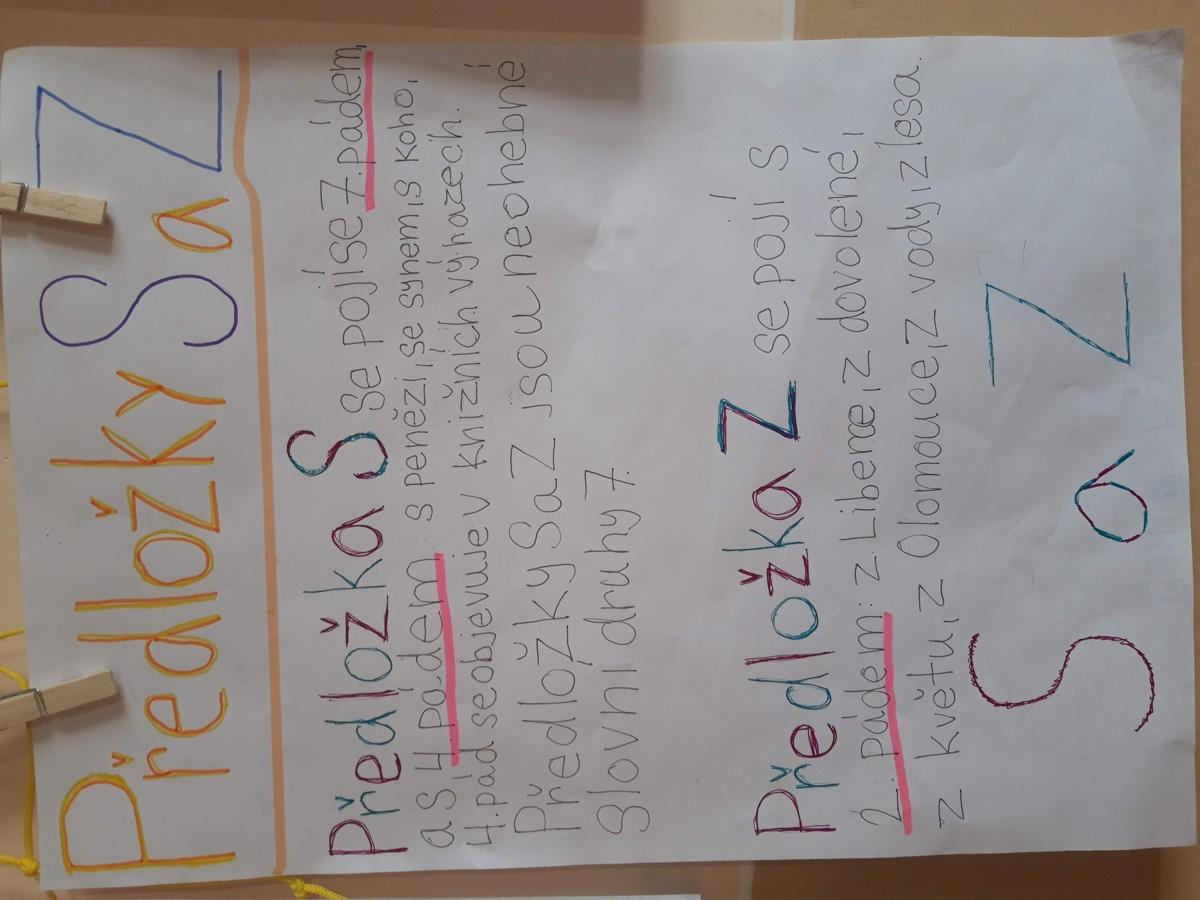 Předložky S a Z
Předložka S se pojí se 7. pádem,
a s 4 pádem: s penězi, se synem, s koho,
4. pád se objevuje v knižních výhazech.
Předložky S a Z jsou neohebné
Slovní druhy 7.
Předložka Z se pojí s
2. pádem: z Liberce, z dovolené,
z květu, z Olomouce, z vody, z lesa.
S a Z